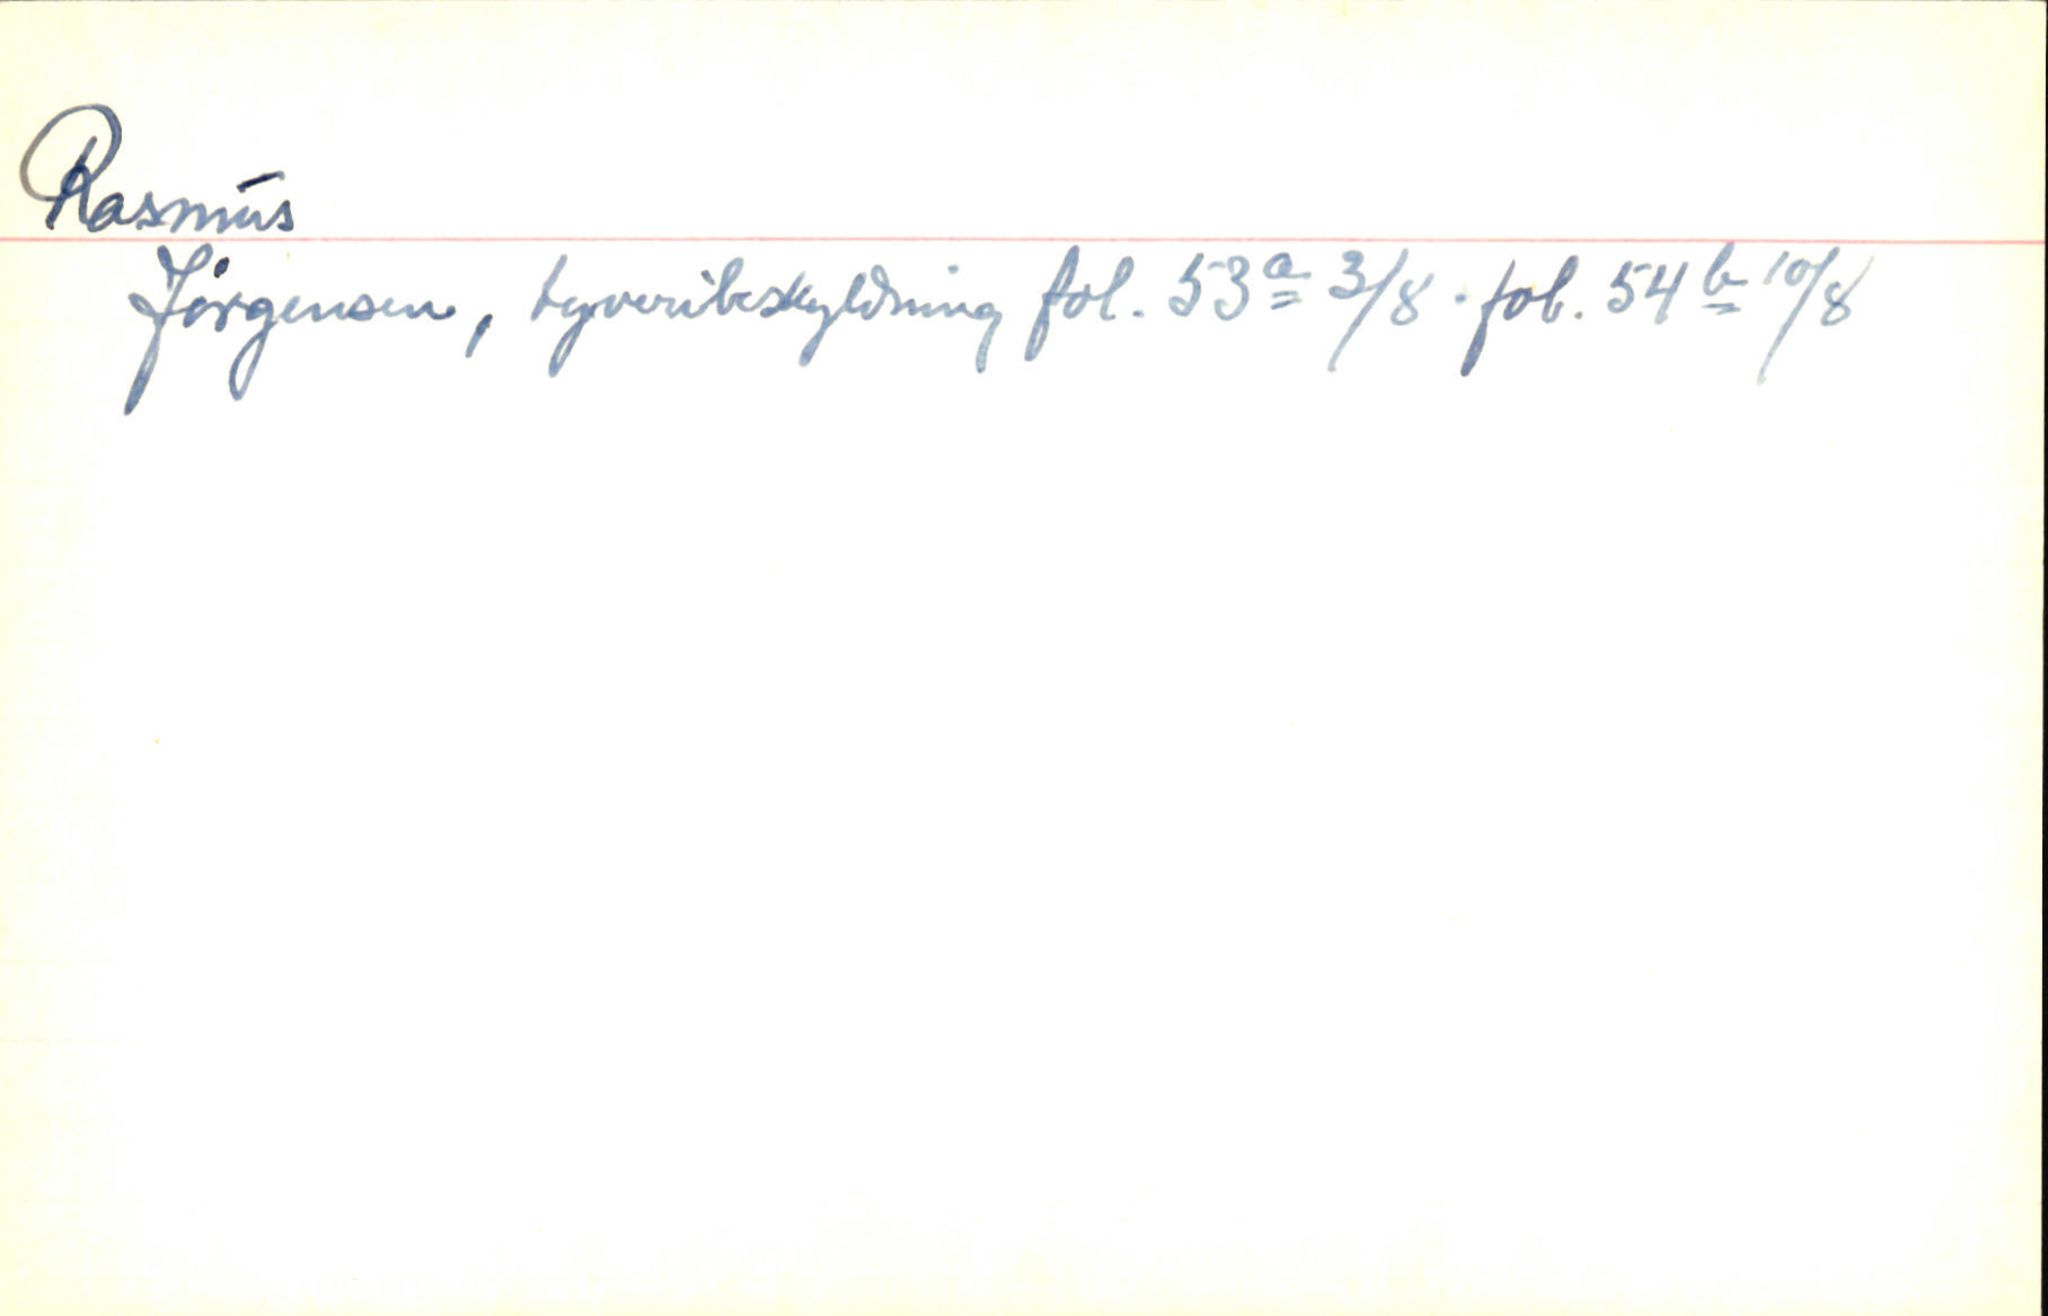 Rasmus
Jörgensen, tyveribeskyldning fol. 53a 3/8. fol. 54b 10/8